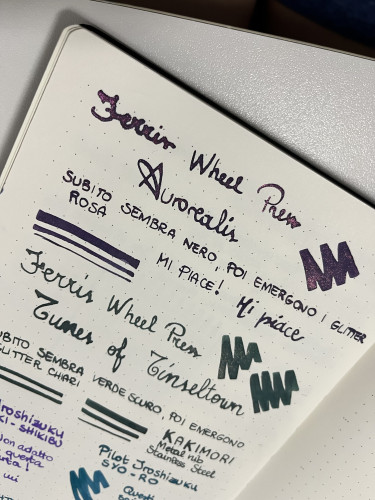 Ferris Wheel Press
Aurorealis
SUBITO SEMBRA NERO, POI EMERGONO I GLITTER
ROSA
MI PIACE! Mi piace
Ferris Wheel Press
Tunes of Tinseltown
SEMBRA VERDE SCURO, POI EMERGONO
GLITTER CHIARI
KAKIMORI
Metal nib
Stainless Steel
Iroshizuku
KI-SHIKIBU
non adatto
questa
Pilot Iroshizuku
SYO-RO